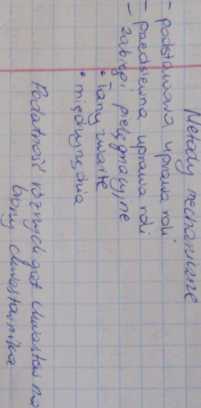 Metody mechaniczne
- podstawowa uprawa roli
- przedsiewna uprawa roli
- zabiegi pielęgnacyjne
• łany zwarte
• międzyrzędzia
Podatność różnych gat. chwastów na
brony chwastownika